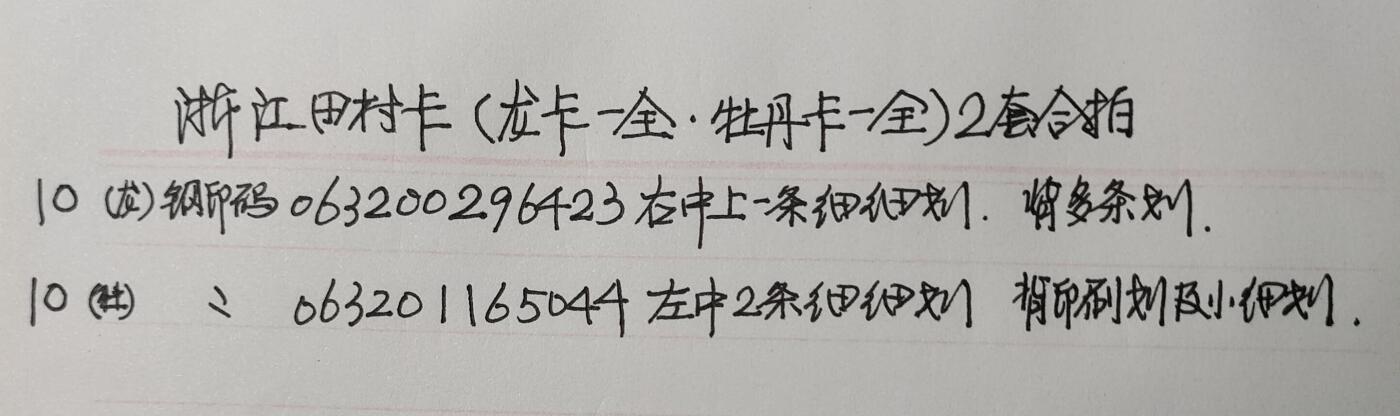 浙江田村卡(龙卡一全·牡丹卡一全)2套合拍
10 (龙)钢印码063200296423右中上一条细细划. 背多条划.
10 (牡) 〃 063201165044左中2条细细划 背印刷划及小细划.